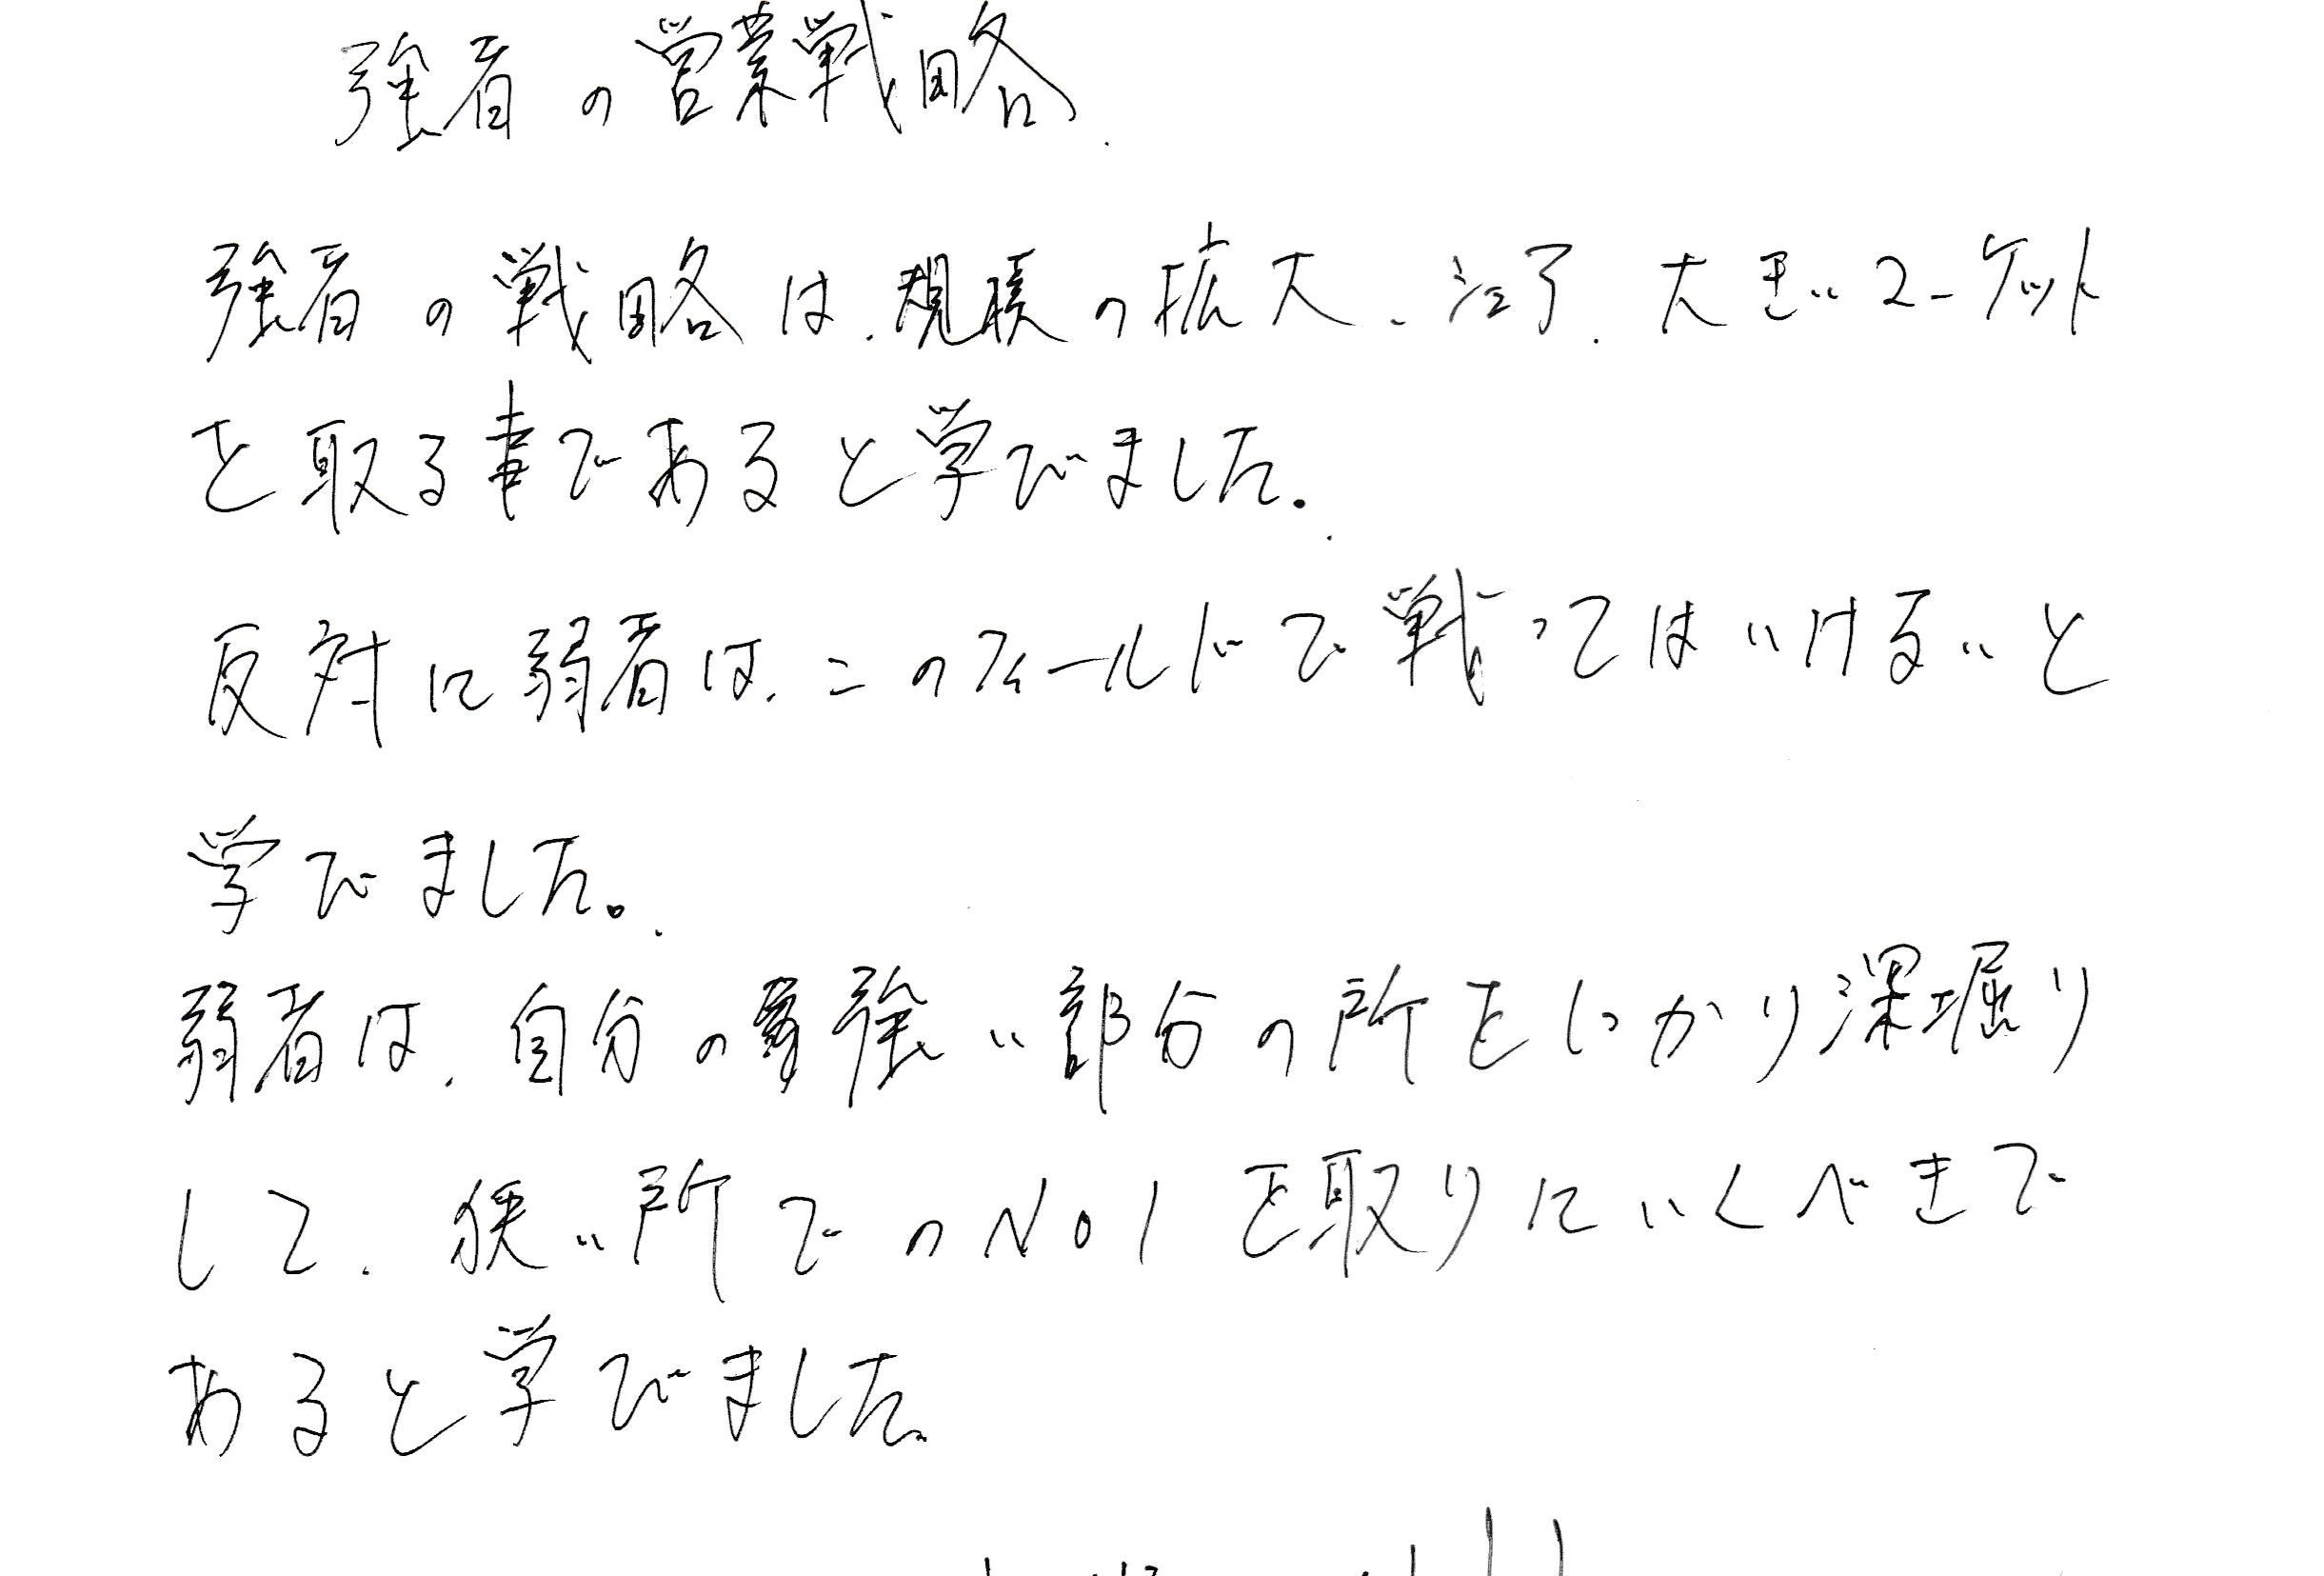 強者の営業戦略
強者の戦略は、規模の拡大、シェア、大きいマーケット
を取る事であると学びました。
反対に弱者は、このフィールドで戦ってはいけないと
学びました。
弱者は、自分の強い部分の所をしっかり深堀り
して、狭い所でのNo1を取りにいくべきで
あると学びました。